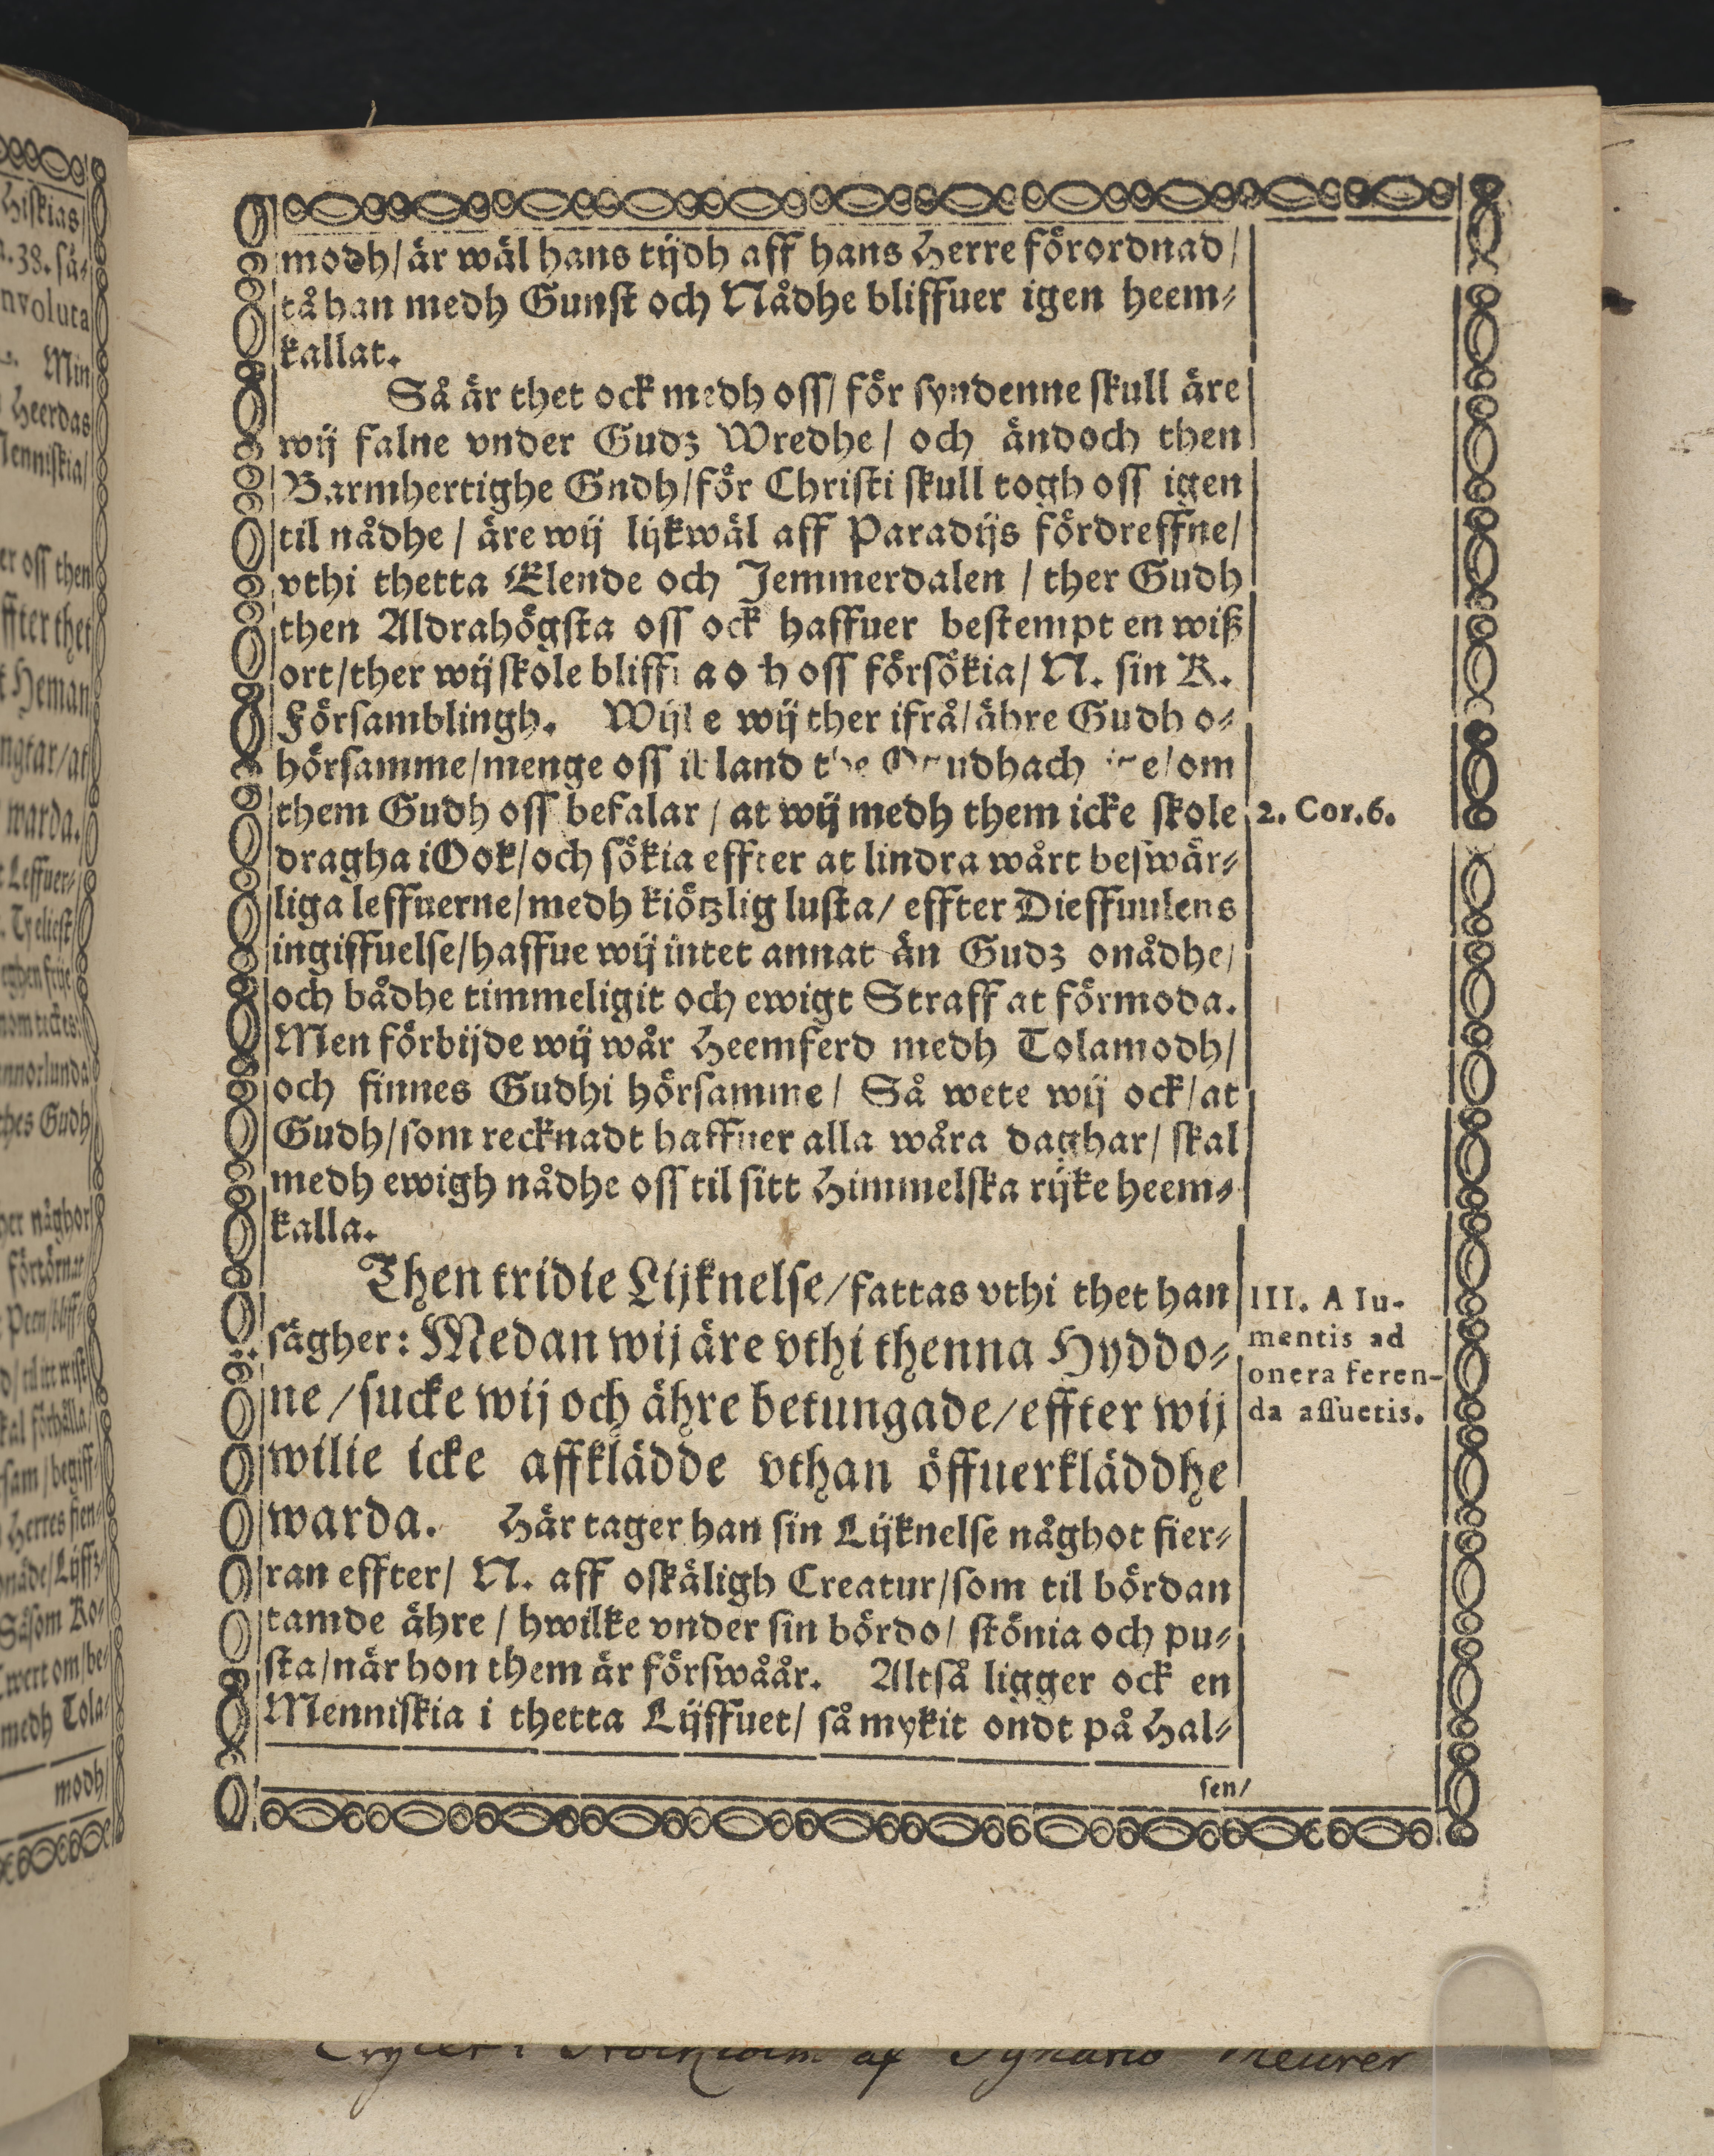 modh/är wäl hans tijdh aff hans Herre förordnad/
tå han medh Gunst och Nådhe bliffuer igen heem-
kallat.
Så är thet ock medh oss/ för syndenne skull äre
wij falne vnder Gudz Wredhe/ och ändoch then
Barmhertighe Gndh/för Christi skull togh oss igen
til nådhe/ äre wij lijkwäl aff Paradijs fördreffne/
vthi thetta Elende och Jemmerdalen/ ther Gudh
then Aldrahögsta oss ock haffuer bestempt en wiß
ort/ther wij skole oss försökia/ N. sin K.
Församblingh. wij ther ifrå/ähre Gudh o-
hörsamme/menge oss land om
them Gudh oss befalar/ at wij medh them icke skole
2. Cor.6.
dragha i Ook/och sökia effter at lindra wårt beswär-
liga leffuerne/medh kiötzlig lusta/ effter Dieffuulens
ingiffuelse/haffue wij intet annat än Gudz onådhe/
och bådhe timmeligit och ewigt Straff at förmoda.
Men förbijde wij wår Heemferd medh Tolamodh/
och finnes Gudhi hörsamme/ Så wete wij ock/at
Gudh/som recknadt haffuer alla wåra daghar/ skal
medh ewigh nådhe oss til sitt Himmelska rijke heem-
kalla.
Then tridie Lijknelse/fattas vthi thet han
sägher: Medan wij äre vthi thenna Hyddo-
ne/sucke wij och ähre betungade/effter wij
wilie icke affklädde vthan öffuerkläddhe
warda. Här tager han sin Lijknelse någhot fier-
III. A Iu-
mentis ad
onera feren-
da assuetis.
ran effter/ N. aff oskäligh Creatur/som til bördan
tamde ähre/ hwilke vnder sin bördo/ stönia och pu-
sta/när hon them är förswåår. Altså ligger ock en
Menniskia i thetta Lijffuet/ så mykit ondt på Hal-
sen/